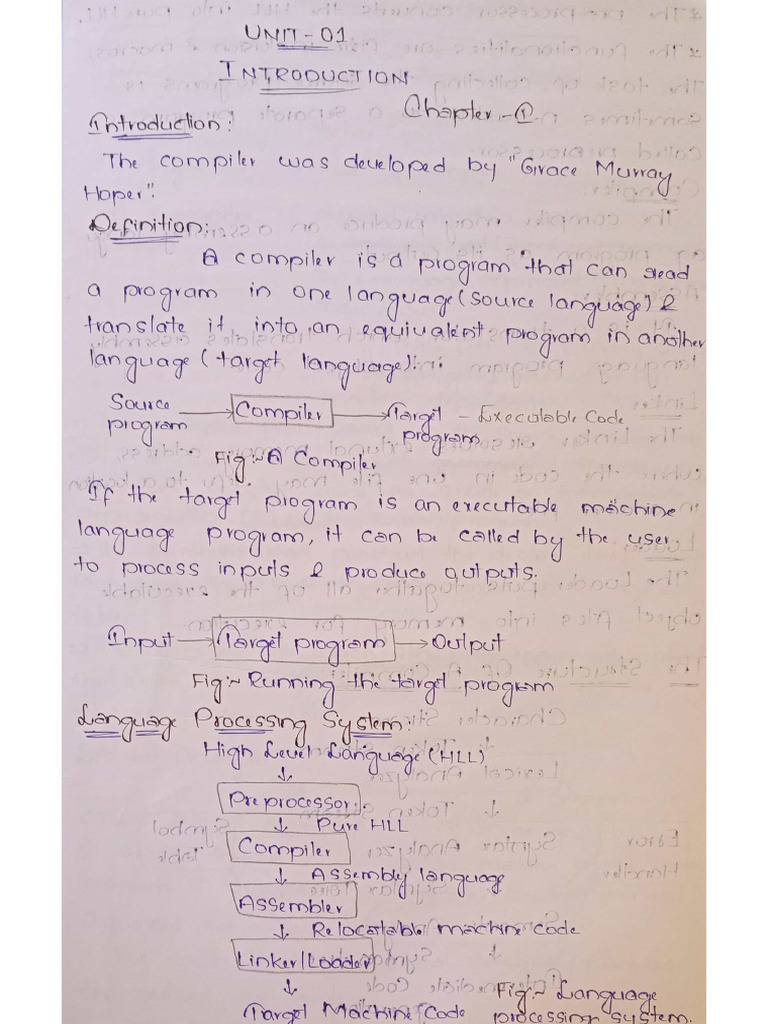 UNIT-01
INTRODUCTION
Chapter-①
Introduction:
The compiler was developed by "Grace Murray
Hoper".
Definition:
A compiler is a program that can read
a program in one language (source language) &
translate it into an equivalent program in another
language (target language).
Source program → Compiler → Target program - Executable Code
Fig:~ A Compiler
If the target program is an executable machine
language program, it can be called by the user
to process inputs & produce outputs.
Input → Target program → Output
Fig:~ Running the target program
Language Processing System:
High Level Language (HLL)
↓
Preprocessor
↓ Pure HLL
Compiler
↓ Assembly language
Assembler
↓ Relocatable machine code
Linker/Loader
↓
Target Machine Code
Fig:~ Language
processing system.